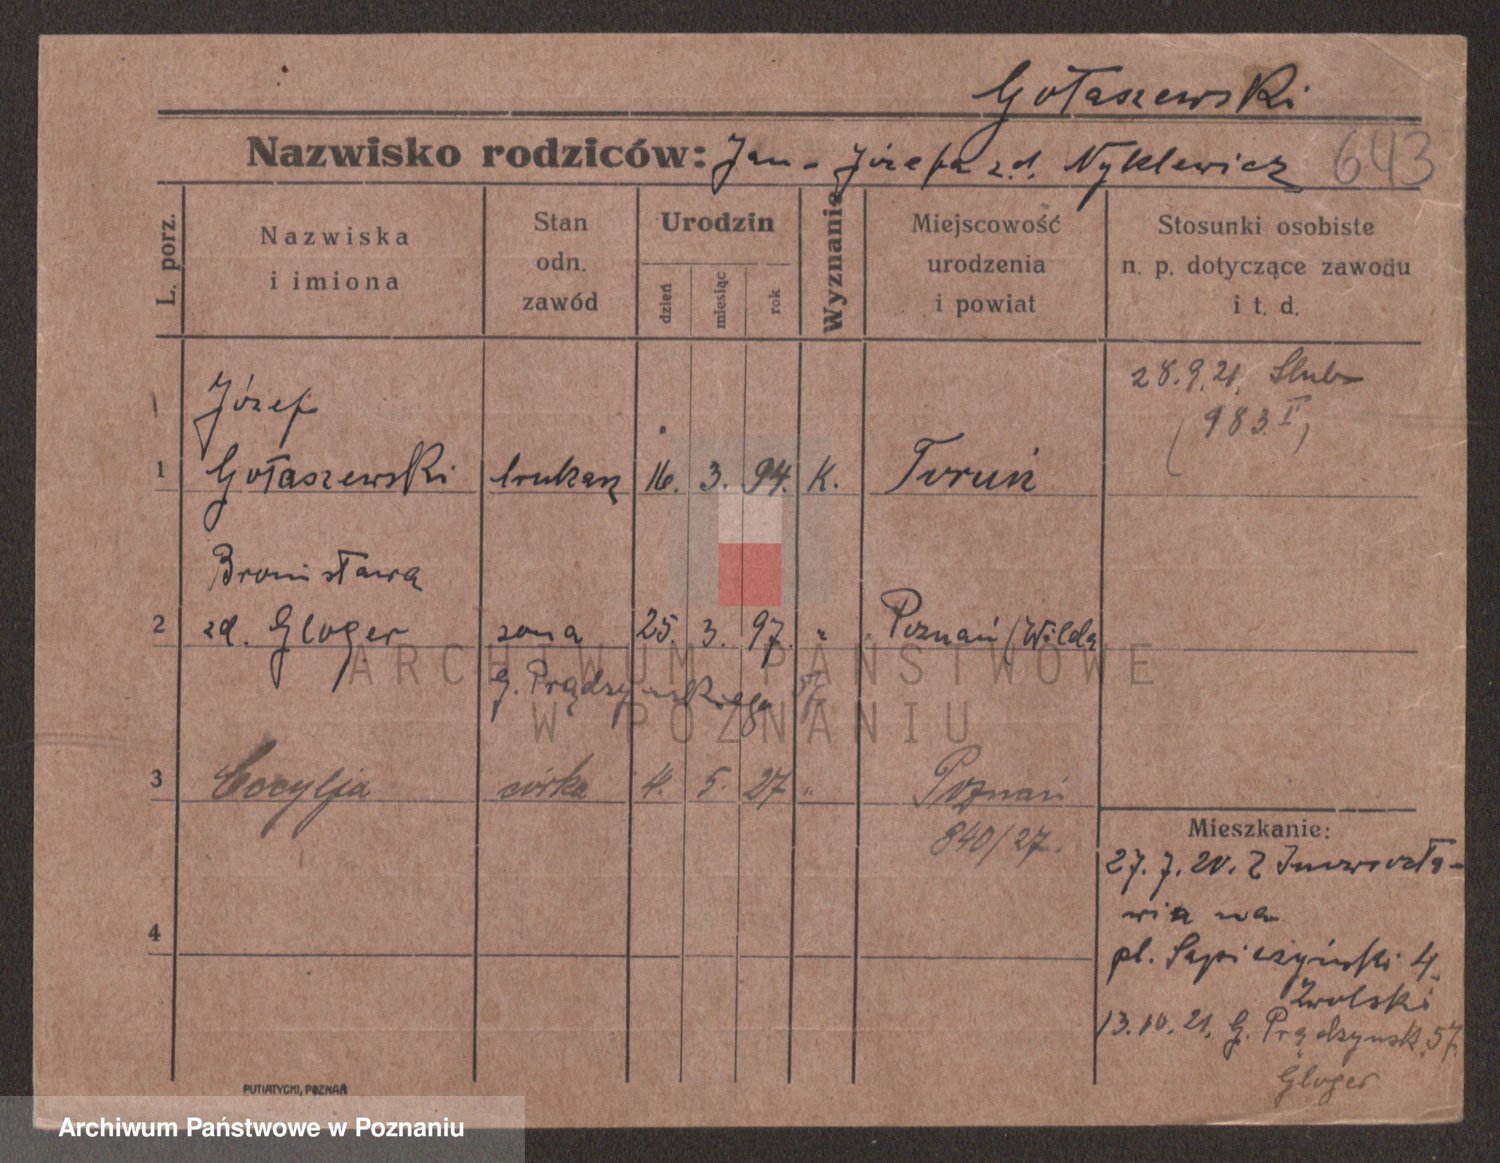 Gołaszewski
Nazwisko rodziców: Jan - Józefa z.d. Nyklewicz
643
L. porz.
Nazwiska
i imiona
Stan
odn.
zawód
Urodzin
dzień
miesiąc
rok
Wyznanie
Miejscowość
urodzenia
i powiat
Stosunki osobiste
n. p. dotyczące zawodu
i t. d.
28.9.21. Slub
(983 I)
Józef
1 Gołaszewski brukarz 16. 3. 94. K. Toruń
Bronisława
2 zd. Gloger żona 25. 3. 97. " Poznań (Wilda
G. Prądzyńskiego 57
3 Cecylja córka 4. 5. 27 " Poznań
840/27.
4
Mieszkanie:
27.7.20. Z Inowrocła-
wia na
pl. Sapieżyński 4.
Zwolski
13.10.21. G. Prądzynsk. 57.
Gloger
PUTIATYCKI, POZNAŃ
ARCHIWUM PAŃSTWOWE
W POZNANIU
Archiwum Państwowe w Poznaniu